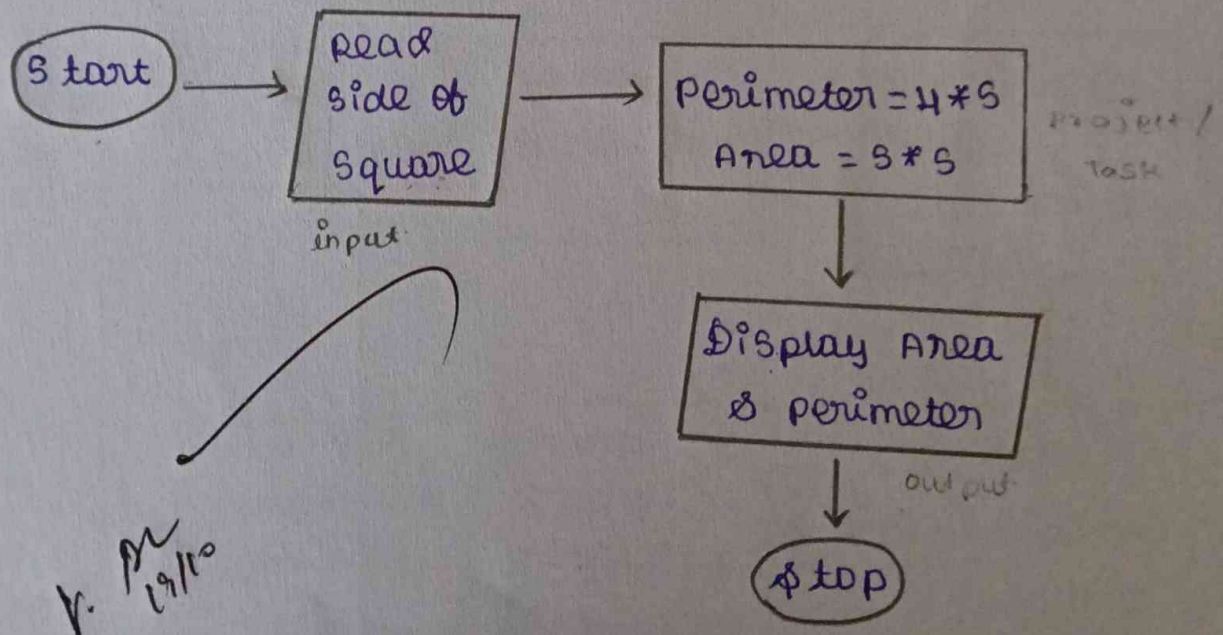 Start
Read
side of
square
input
Perimeter = 4*S
Area = S*S
Project/
Task
Display Area
& perimeter
output
Stop